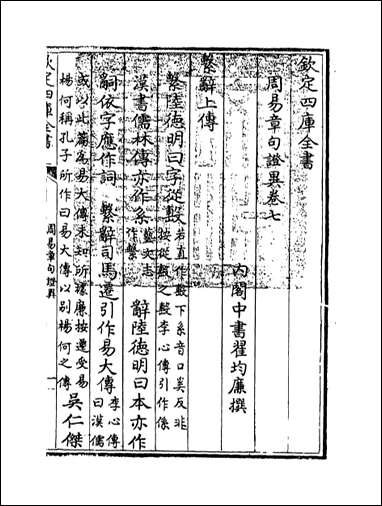 欽定四庫全書
周易章句證異卷七
內閣中書翟均廉撰
繫辭上傳
繫陸德明曰字從毄若直作毄下系音口奚反非
按從毄之毄李心傳引作係
漢書儒林傳亦作系藝文志作繫
辭陸德明曰本亦作
嗣依字應作詞
繫辭司馬遷引作易大傳李心傳曰漢儒
或以此篇為易大傳未知所據廉按遷受易
楊何稱孔子所作曰易大傳以別楊何之傳
吳仁傑
欽定四庫全書
周易章句證異
一